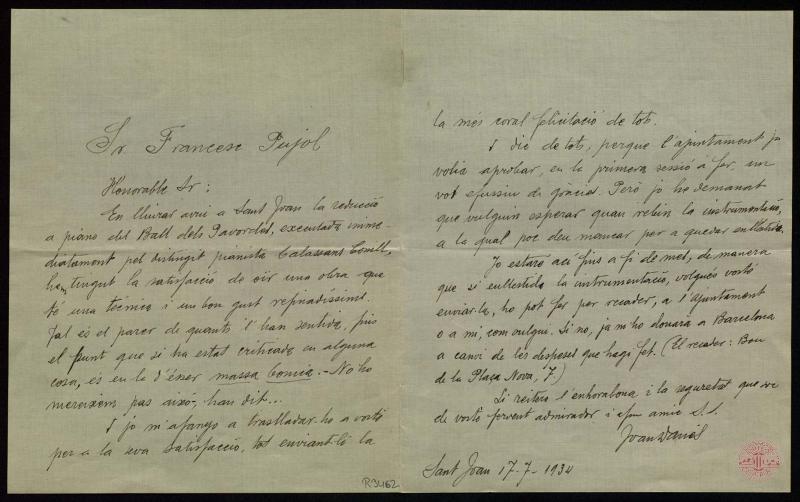 Sr Francesc Pujol
Honorable Sr:
En lliurar avui a Sant Joan la reducció
a piano del Ball dels Pavordes, executada imme-
diatament pel distingit pianista Calassans Conill,
hem tingut la satisfacció de oir una obra que
té una tècnica i un bon gust refinadíssims.
Tal és el parer de quants l'han sentida, fins
el punt que si ha estat criticada en alguna
cosa, és en la d'ésser massa bonica. - No ho
mereixem pas això, han dit...
I jo m'afanyo a traslladar-ho a vosté
per a la seva satisfacció, tot enviant-li la
la més coral felicitació de tots.
I dic de tots, perque l'ajuntament ja
volia aprobar, en la primera sessió a fer, un
vot efussiu de gràcies. Però jo he demanat
que vulguin esperar quan rebin la instrumentació,
a la qual poc deu mancar per a quedar enllestida.
Jo estaré ací fins a fi de mes, de manera
que si enllestida la instrumentació, volgués vosté
enviar-la, ho pot fer per recader, a l'ajuntament
o a mi, com vulgui. Si no, ja m ho donarà a Barcelona
a canvi de les despeses que hagi fet. (El recader: Bou
de la Plaça Nova, 7.)
Li reitero l'enhorabona i la seguretat que soc
de vosté fervent admirador i afm amic S. S.
Joan Danés
Sant Joan 17-7-1934
R3462